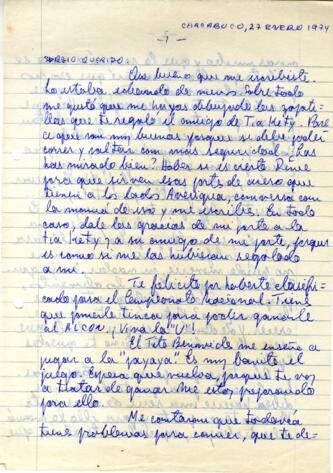 CHACABUCO, 27 ENERO 1974
- 1 -
SERGIO QUERIDO:
Que bueno que me escribiste.
Lo estaba echando de menos. Sobre todo
me gustó que me hayas dibujado las zapati-
llas que te regaló el amigo de Tía Kety. Pare
ce que son muy buenas porque si debe poder
correr y saltar con más seguridad. ¿Las
has mirado bien? Haber si es cierto. Dime
para qué sirven esas parte de cuero que
tienen a los lados. Averigua, conversa con
la mamá de eso y me escribes. En todo
caso, dale las gracias de mi parte a la
tía Kety y a su amigo de mi parte, porque
es como si me las hubieran regalado
a mí.
Te felicito por haberte clasifi-
cado para el campeonato nacional. Tiene
que ponerle tinca para poder ganarle
al ALCO. ¡¡Viva la "U"!!
El Tito Benavide me enseñó a
jugar a la "payaya". Es muy bonito el
juego. Espera que vuelva, porque te voy
a tratar de ganar. Me estoy preparando
para ello.
Me contaron que todavía
tiene problemas para comer, que te de-